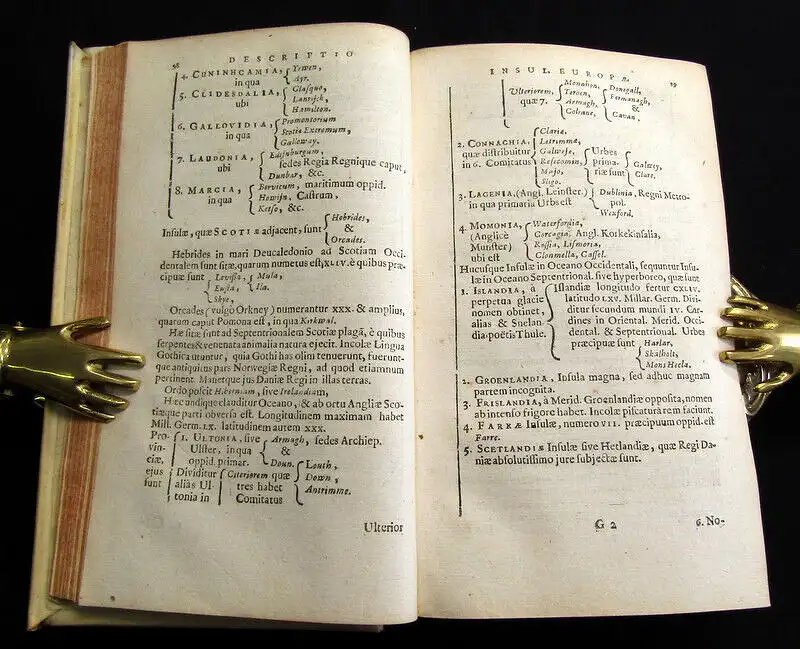 98 DESCRIPTIO
4. CUNINHCAMIA, in qua { Yrwen, Ayr.
5. CLIDESDALIA, ubi { Glasquo, Lanrisk, Hamilton.
6. GALLOVIDIA, in qua { Promontorium Scotiæ Extremum, Galloway.
7. LAUDONIA, ubi { Edinburgum, sedes Regia Regnique caput, Dunbar, &c.
8. MARCIA, in qua { Bervicum, maritimum oppid. Howijn, Castrum, Kelso, &c.
Insulæ, quæ SCOTIÆ adjacent, sunt { Hebrides, & Orcades.
Hebrides in mari Deucaledonio ad Scotiam Occi-
dentalem sunt sitæ, quarum numetus est, XLIV. è quibus præ-
cipuæ sunt { Levissa, Eusta, Skye, { Mula, Ila.
Orcades (vulgo Orkney) numerantur XXX. & amplius,
quarum caput Pomona est, in qua Kirkwal.
Hæ sitæ sunt ad Septentrionalem Scotiæ plagã, è quibus
serpentes & venenata animalia natura ejecit. Incolæ Lingua
Gothica utuntur, quia Gothi has olim tenuerunt, fuerunt-
que antiquitus pars Norvegiæ Regni, ad quod etiamnum
pertinent. Manetque jus Daniæ Regi in illas terras.
Ordo poscit Hiberniam, sive Irelandiam,
Hæc undique clauditur Oceano, & ab ortu Angliæ Sco-
tiæque parti obversa est. Longitudinem maximam habet
Mill. Germ. LX. latitudinem autem XXX.
Pro-
vin-
ciæ,
ejus
sunt
1. ULTONIA, sive Ulster, in qua oppid. primar. { Armagh, sedes Archiep. & Doun.
Dividitur alias Ul-
tonia in { Citeriorem quæ tres habet Comitatus { Louth, Down, Antrimme.
Ulterior
INSUL. EUROPÆ. 99
Ulteriorem, quæ 7. { Monahon, Tereon, Armagh, Colrane, { Donegall, Fermanagh, & Cavan.
2. CONNACHIA, quæ distribuitur in 6. Comitatus { Claria, Letrimmæ, Galwese, Roscomin, Majo, Sligo. Urbes prima-
riæ sunt { Galwey, Clare.
3. LAGENIA, (Angl. Leinster.) in qua primaria Urbs est { Dublinia, Regni Metro-
pol. Wexford.
4. MOMONIA, (Anglicè Munster) ubi est { Waterfordia, Corcagia, Angl. Korkekinsalia, Rossia, Lismoria, Clonmella, Cassel.
Hucusque Insulæ in Oceano Occidentali, sequuntur Insu-
læ in Oceano Septentrional. sive hyperboreo, quæ sunt
1. ISLANDIA, à perpetua glacie nomen obtinet, alias & Snelan-
dia poëtis Thule. { Islandiæ longitudo fertur CXLIV. latitudo LXV. Millar. Germ. Divi-
ditur secundum mundi IV. Car-
dines in Oriental. Merid. Occi-
dental. & Septentrional. Urbes
præcipuæ sunt { Harlar, Skalholt, Mons Hecla.
2. GROENLANDIA, Insula magna, sed adhuc magnam
partem incognita.
3. FRISLANDIA, à Merid. Groenlandiæ opposita, nomen
ab intenso frigore habet. Incolæ piscaturam faciunt.
4. FARRÆ Insulæ, numero VII. præcipuum oppid. est
Farre.
5. SCETLANDIÆ Insulæ sive Hetlandiæ, quæ Regi Da-
niæ absolutissimo jure subjectæ sunt.
G 2 6. No-